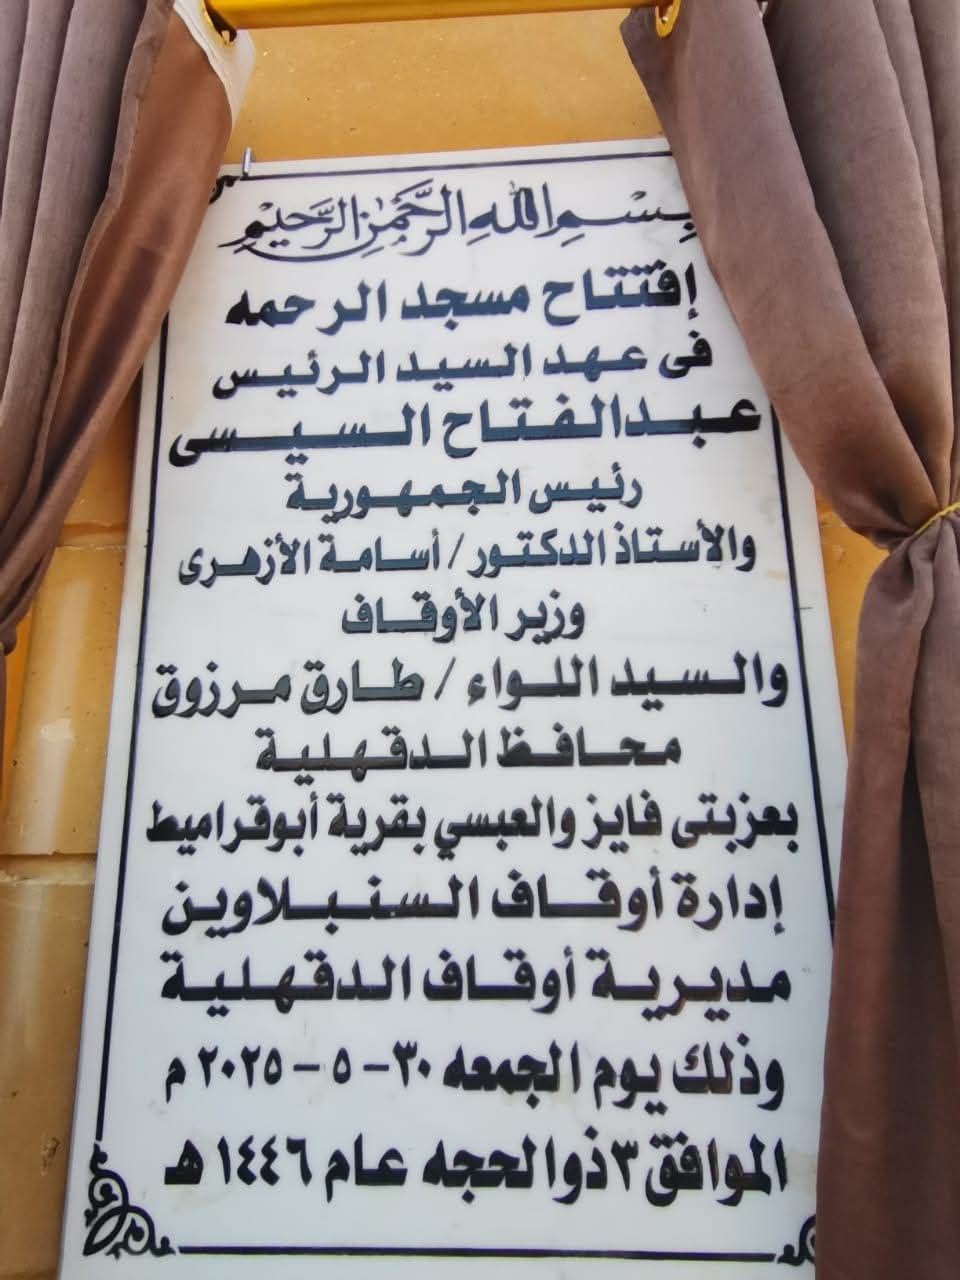 بِسْمِ اللهِ الرَّحْمٰنِ الرَّحِيْمِ
إفتتاح مسجد الرحمه
فى عهد السيد الرئيس
عبدالفتاح السيسى
رئيس الجمهورية
والأستاذ الدكتور / أسامة الأزهرى
وزير الأوقاف
والسيد اللواء / طارق مرزوق
محافظ الدقهلية
بعزبتى فايز والعبسي بقرية أبوقراميط
إدارة أوقاف السنبلاوين
مديرية أوقاف الدقهلية
وذلك يوم الجمعه ٣٠ - ٥ - ٢٠٢٥ م
الموافق ٣ ذوالحجه عام ١٤٤٦ هـ